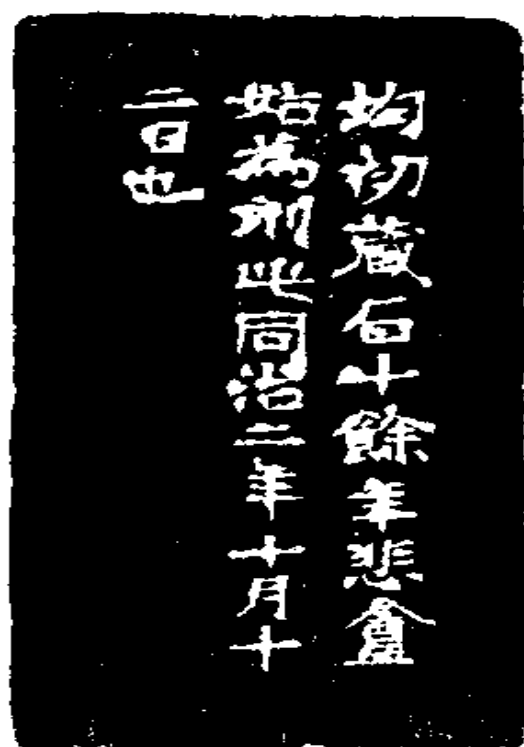 均初藏石十餘年悲盦
始為刻此同治二年十月十
二日也